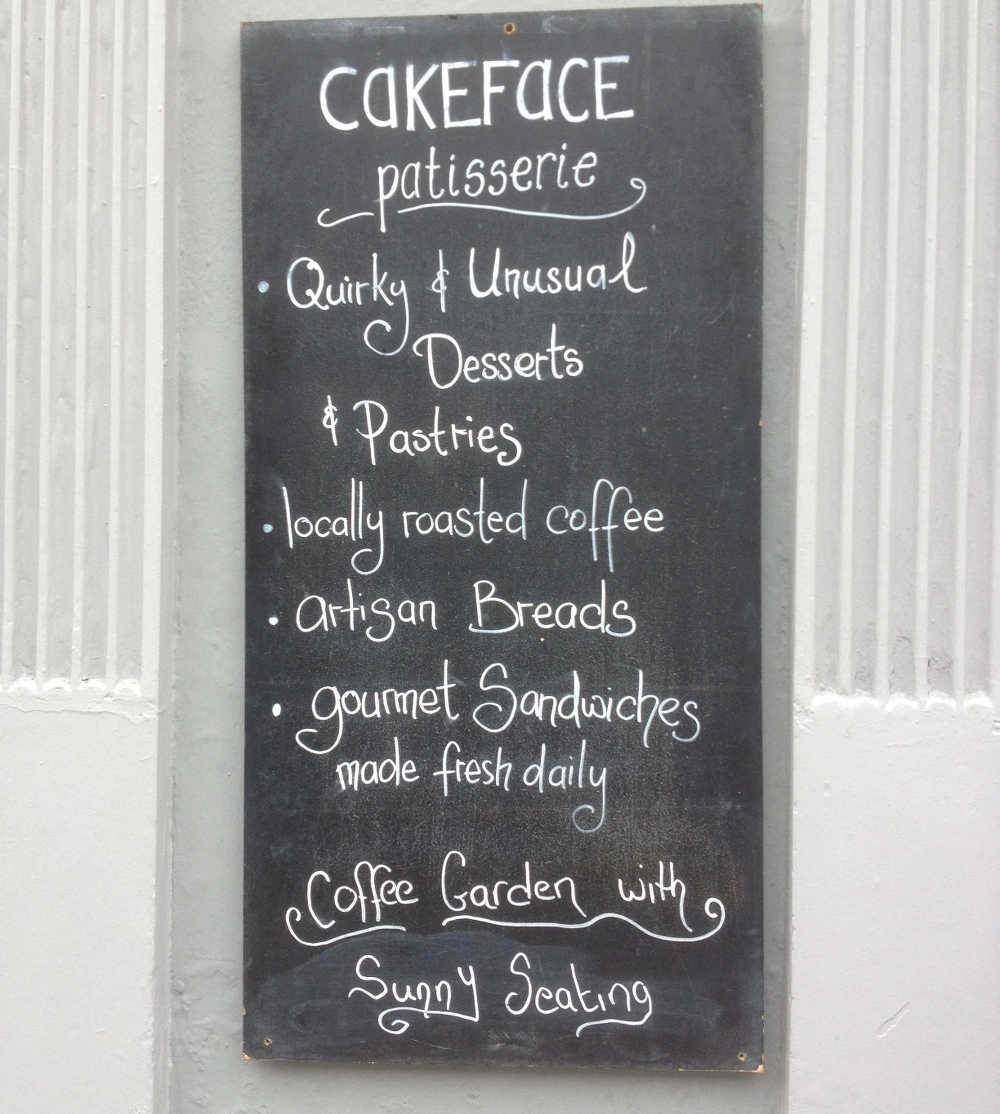 CaKEFaCE
patisserie
• Quirky & Unusual
Desserts
& Pastries
• locally roasted coffee
• artisan Breads
• gourmet Sandwiches
made fresh daily
Coffee Garden with
Sunny Seating